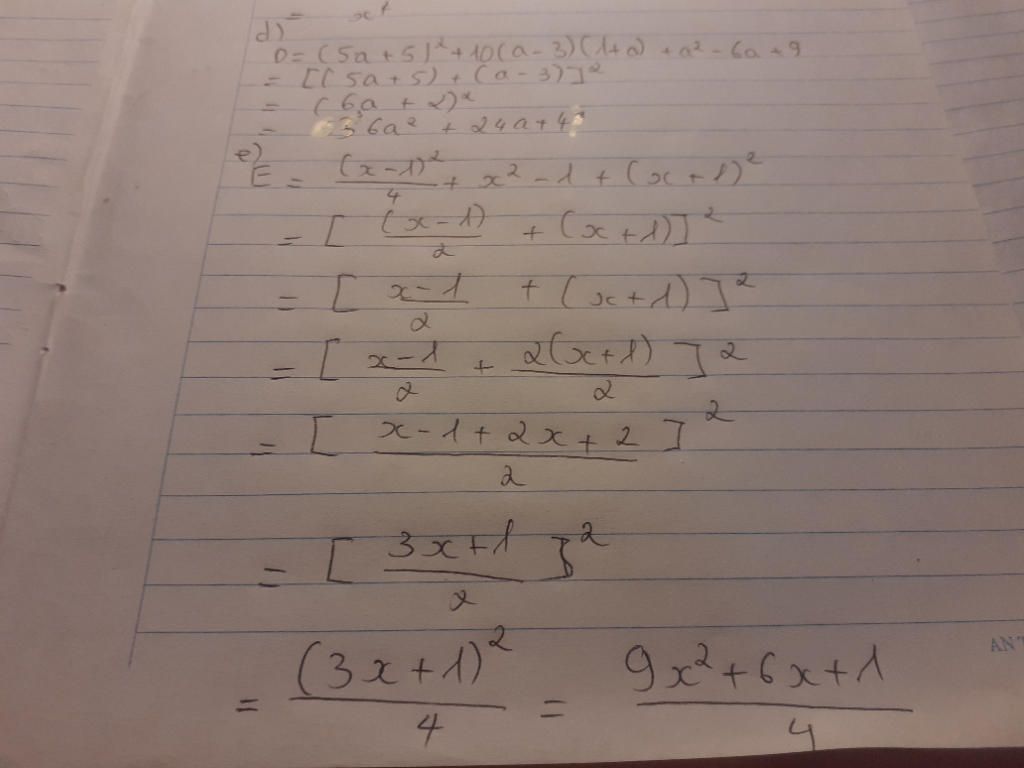 = x¹
d)
D = (5a + 5)² + 10(a - 3)(1+a) + a² - 6a + 9
= [(5a+5) + (a-3)]²
= (6a + 2)²
= 36a² + 24a + 4
e)
E = (x-1)²/4 + x² - 1 + (x+1)²
= [(x-1)/2 + (x+1)]²
= [x-1/2 + (x+1)]²
= [x-1/2 + 2(x+1)/2]²
= [x-1+2x+2/2]²
= [3x+1/2]²
= (3x+1)²/4 = 9x²+6x+1/4